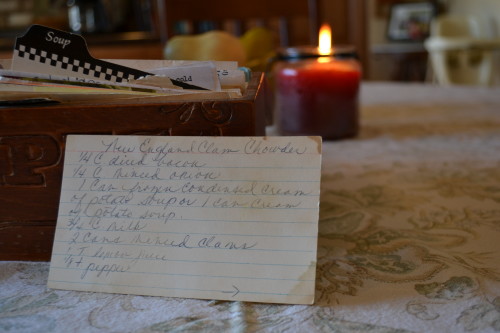 Soup
cold
New England Clam Chowder
1/4 C diced bacon
1/4 C minced onion
1 can frozen condensed cream
of potato soup or 1 can cream
of potato soup
C milk
2 cans minced clams
T lemon juice
pepper